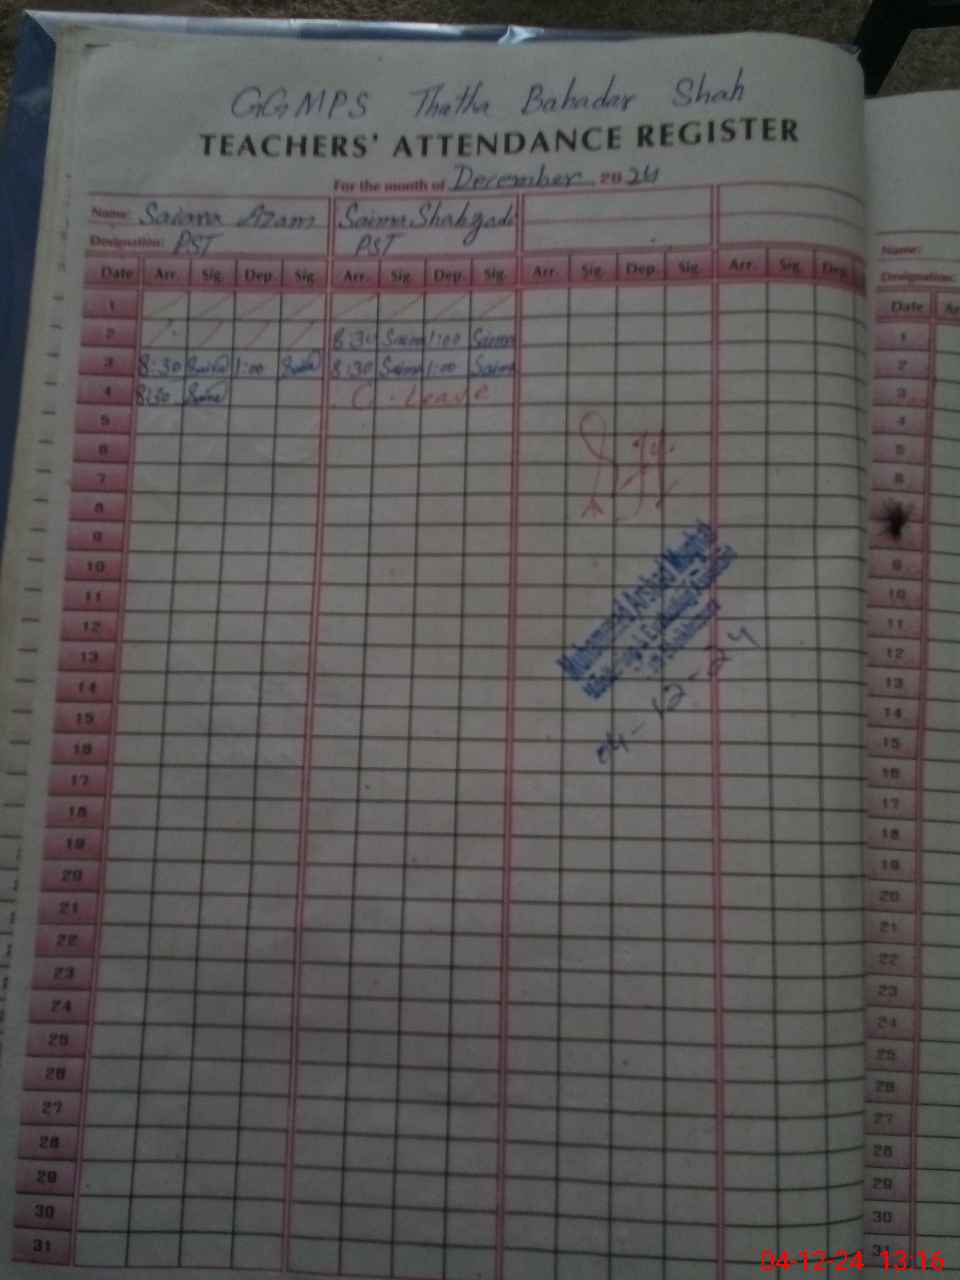 GGMPS Thatha Bahadar Shah
TEACHERS' ATTENDANCE REGISTER
For the month of December 2024
Name: Azam Saima Shahzadi
Designation: PST PST
Date Arr. Sig. Dep. Sig. Arr. Sig. Dep. Sig. Arr. Sig. Dep. Sig. Arr. Sig. Dep.
1
2 8:30 Saima 1:00 Saima
3 8:30 1:00 8:30 Saima 1:00 Saima
4 8:30 C. Leave
5
6
7
8
9
10
11
12
13
14
15
16
17
18
19
20
21
22
23
24
25
26
27
28
29
30
31
Muhammad Arshad Mughal
Monitoring & Evaluation
04-12-24
Name:
Designation:
Date
1
2
3
4
5
6
9
10
11
12
13
14
15
16
17
18
19
20
21
22
23
24
25
26
27
28
29
30
31
04-12-24 13:16